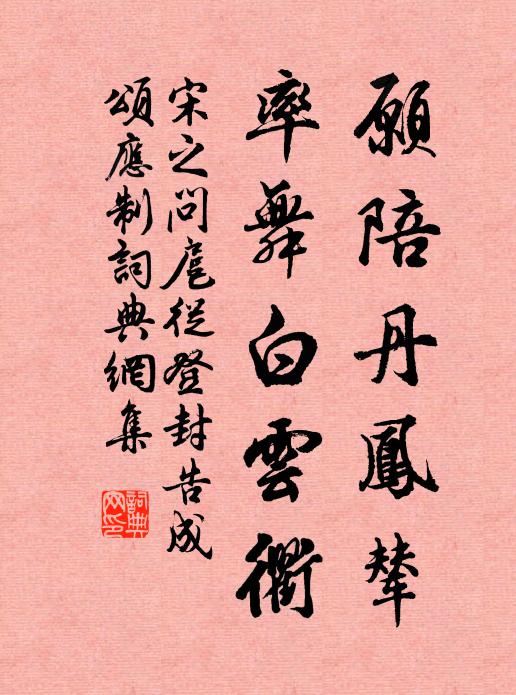 願陪丹鳳輦
率舞白雲衢
宋之問扈從登封告成
頌應制詞典網集
詞典网印